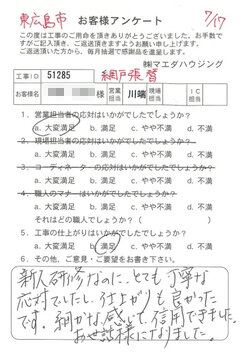 東広島市 お客様アンケート 7/17
この度は工事のご用命を頂きありがとうございました。お手数で
すがご記入頂き、ご返送頂きますようお願い申し上げます。
ご返送頂いた方から、毎月抽選で感謝品を進呈します。
㈱マエダハウジング
工事ID 51285 網戸張替
お客様名 様 営業担当 川端 現場担当 IC担当
1. 営業担当者の応対はいかがでしたでしょうか?
a. 大変満足 b. 満足 c. やや不満 d. 不満
2. 現場担当者の応対はいかがでしたでしょうか?
a. 大変満足 b. 満足 c. やや不満 d. 不満
3. コーディネーターの応対はいかがでしたでしょうか?
a. 大変満足 b. 満足 c. やや不満 d. 不満
4. 職人のマナーはいかがでしたでしょうか?
a. 大変満足 b. 満足 c. やや不満 d. 不満
それはどの職人でしょうか?( )
5. 工事の仕上がりはいかがでしたでしょうか?
a. 大変満足 b. 満足 c. やや不満 d. 不満
6. その他、ご意見・ご要望をお書き下さい。
新人研修なのに、とても丁寧な
応対でしたし、仕上がりも良かった
です。細かな感じで、信用できました。
お世話様になりました。